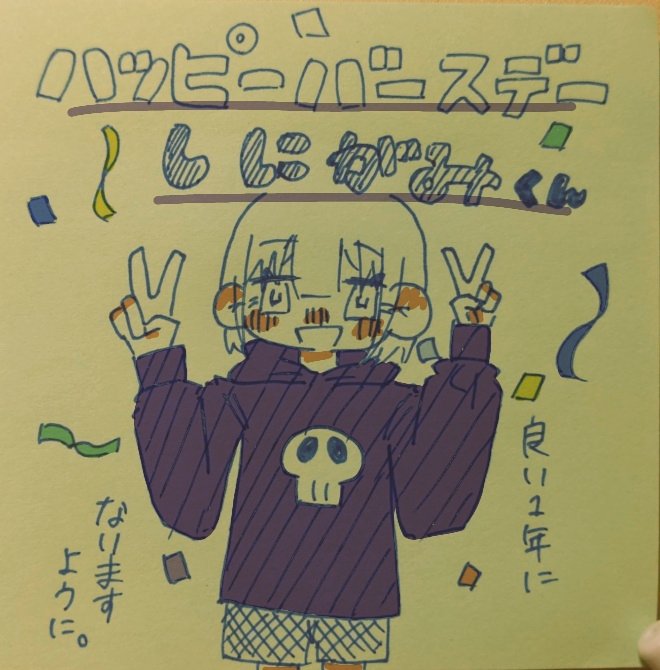 ハッピーバースデー
しにがみくん
良い1年に
なります
ように。